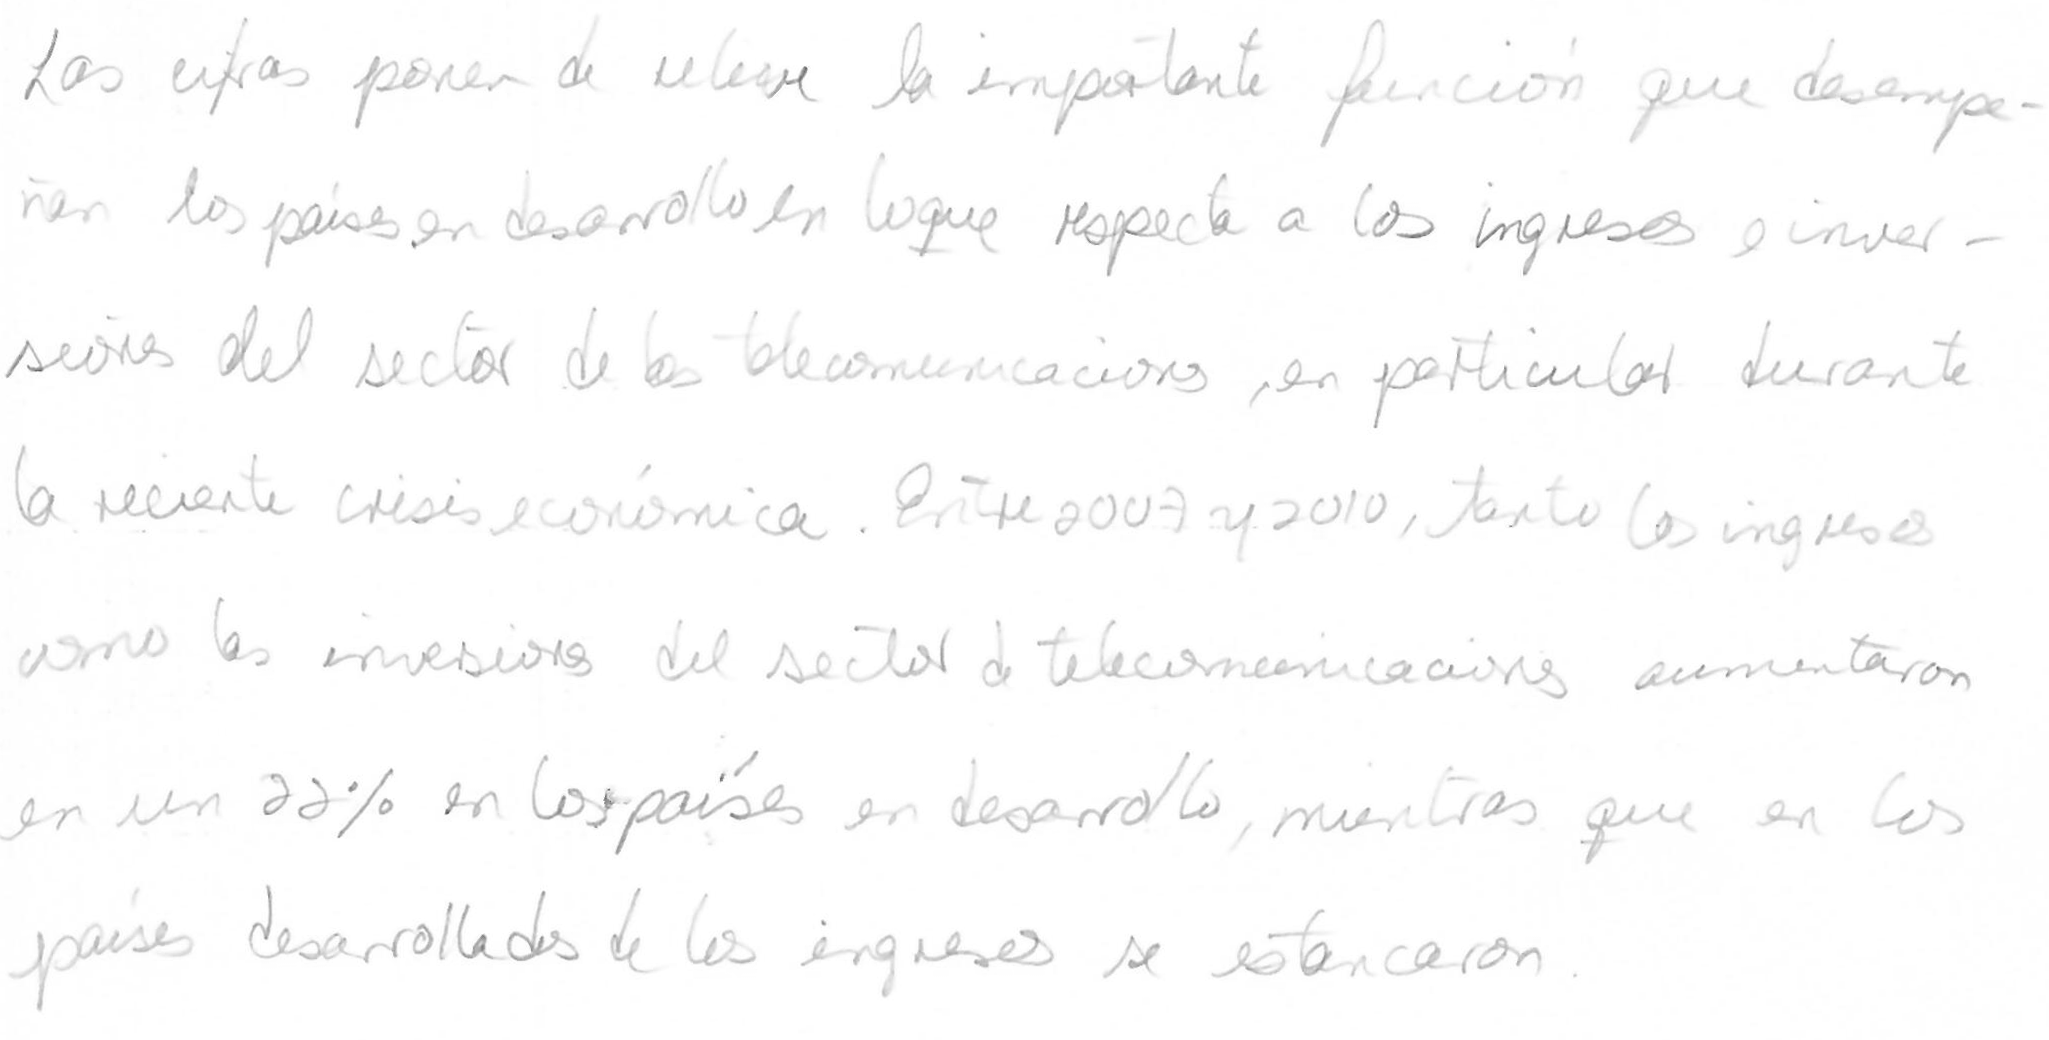 Las cifras ponen de relieve la importante función que desempe-
ñan los países en desarrollo en lo que respecta a los ingresos e inver-
siones del sector de las telecomunicaciones, en particular durante
la reciente crisis económica. Entre 2007 y 2010, tanto los ingresos
como las inversiones del sector de telecomunicaciones aumentaron
en un 22% en los países en desarrollo, mientras que en los
países desarrollados de los ingresos se estancaron.